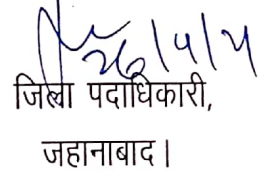 26/4/4
जिला पदाधिकारी,
जहानाबाद।